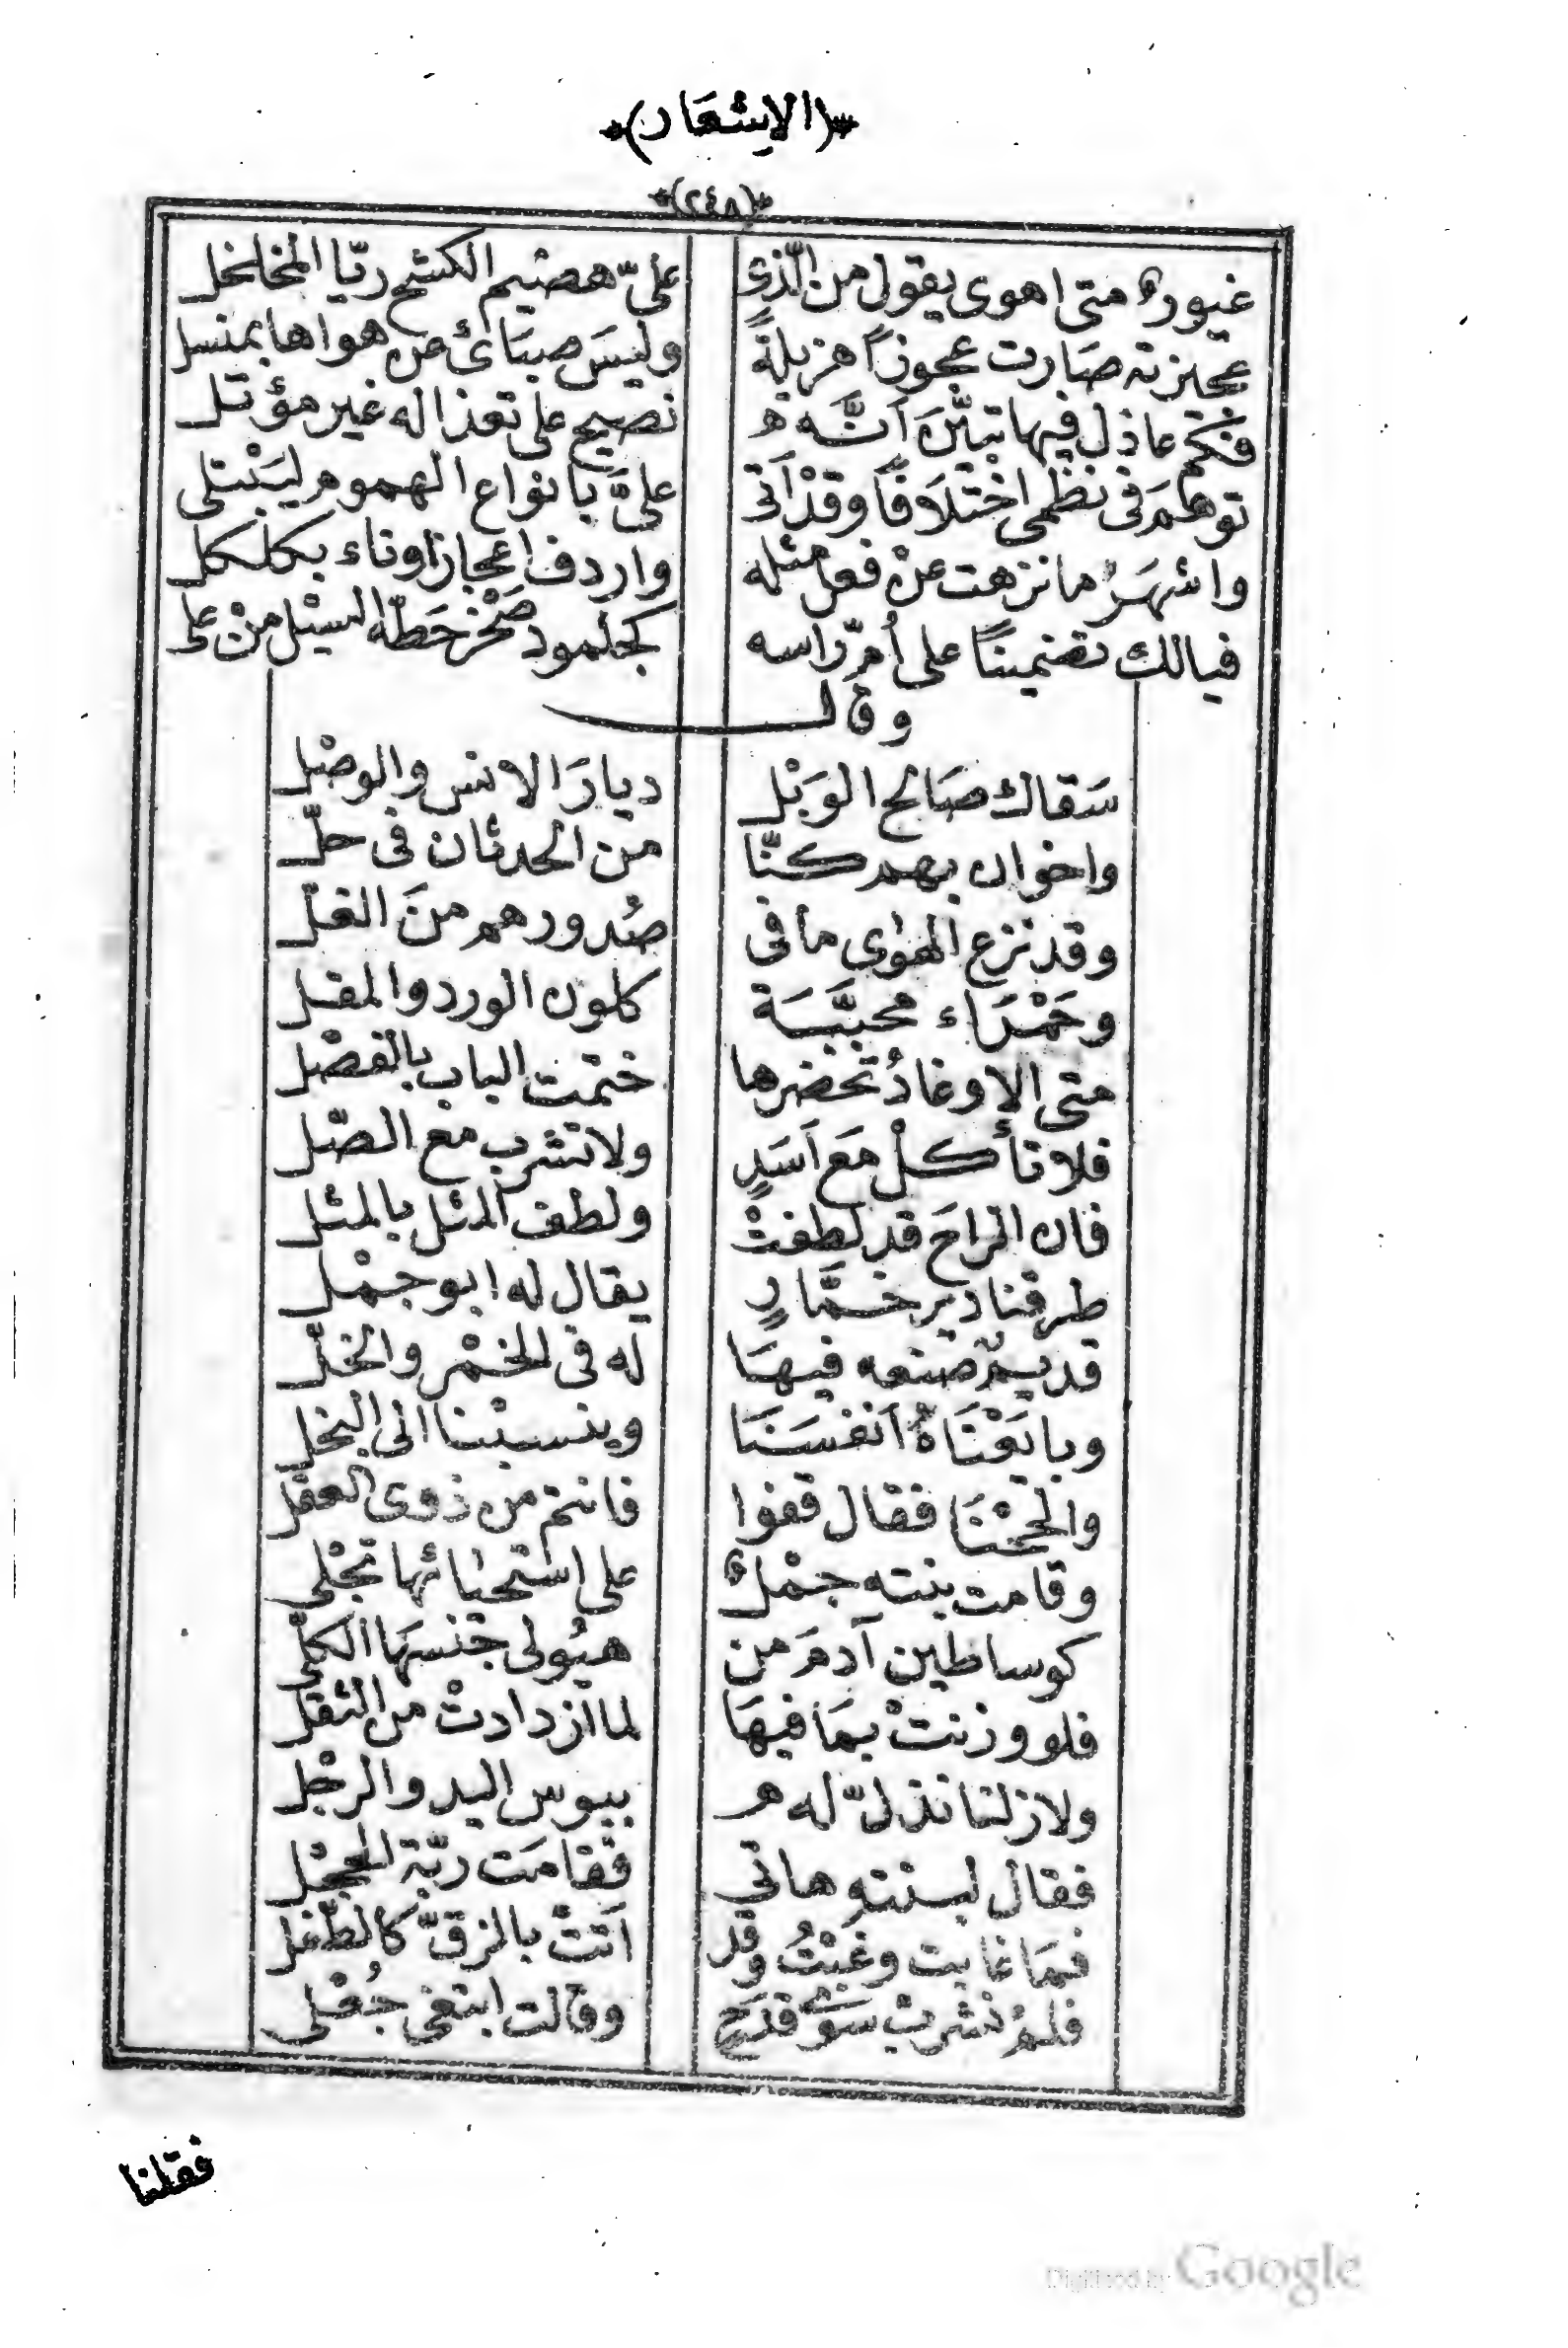 *(الاشعار)*
*(٢٤٨)*
غيورٌ متى اهوى يقول من الّذي علىّ هضيم الكشح ريّا المخلخل
عجنزته صَارت عجوزاً هزيلةً وليسَ صبَائ عن هواها بمنسل
فكم عاذل فيها تبيَّنَ اَنَّه نصيح على تعذاله غير مؤتل
توهّمَ فى نظمى اختلَافًا وقدْ اَتى علىَّ بانواع الهموم ليَبْتلى
واشهَرُ مانزهت عنْ فعل مثله واردف اعجازا وناء بكلكل
فيالك تضمينًا على اُمّ راسه كجلمود صَخْر حَطّه السيْل منْ على
وقال
سَقاك صَالح الوَبْل ديارَ الانس والوصْل
واخوان بهم كنّا من الحدثان فى حلّ
وقد نزع الهوٰى ما فى صُدورهم منَ الغلّ
وحَمْرَاء محبّبَسَة كلون الورد والمقل
متى الاوغادُ تحْضرها ختمْت الباب بالفصْل
فلا تأكلْ مَع اَسَدٍ ولا تشرب مع الصّل
فان الراحَ قد لطفتْ ولطف المثل بالمثل
طرقنا دير خمَّارٍ يقال له ابو جهْل
قديمٌ صنعه فيهَا له فى الخمْر والخلّ
وبايَعْنَاهُ اَنفسَنَا وينسبْنا الى البخل
والححْنَا فقال قفوا فانتم من ذوى العقْل
وقامت بنته جمْلٌ على استحيٰائها تجْلى
كوساطين آدمَ من هيُولى جنسهَا الكلّى
فلو وزنتْ بمَا فيهَا لما ازدادتْ من الثقل
ولازلنا نذلّ له ببوس اليد والرجْل
فقال لبنْتهِ هاتى فقامَت ربّة الحجْل
فمَا غابت وغبْتُ وقد اَتتْ بالزقّ كالطّفل
فلمْ نشربْ سوَى قدَحٍ وقالت ابتغى جُعْلى
فقلنا
Digitized by Google